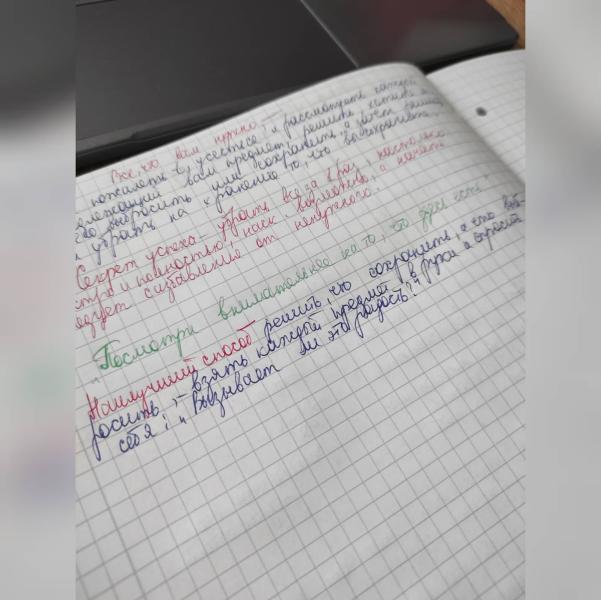 Все, что вам нужно —
пожалеть в усесться и рассмотреть каждый
лежащий вам предмет, решите, хотите ли
его выбросить или сохранить, а затем решить,
убрать на хранение то, что вы сохраните.
Секрет успеха — убрать все за раз, настолько
стро и полностью, наск. возможно, и начать
едует с избавления от ненужного.
"Посмотри внимательнее на то, что у тебя есть"
Наилучший способ решить, что сохранить, а что выб-
росить, — взять каждый предмет в руки и спросить
себя: "Вызывает ли это радость?"